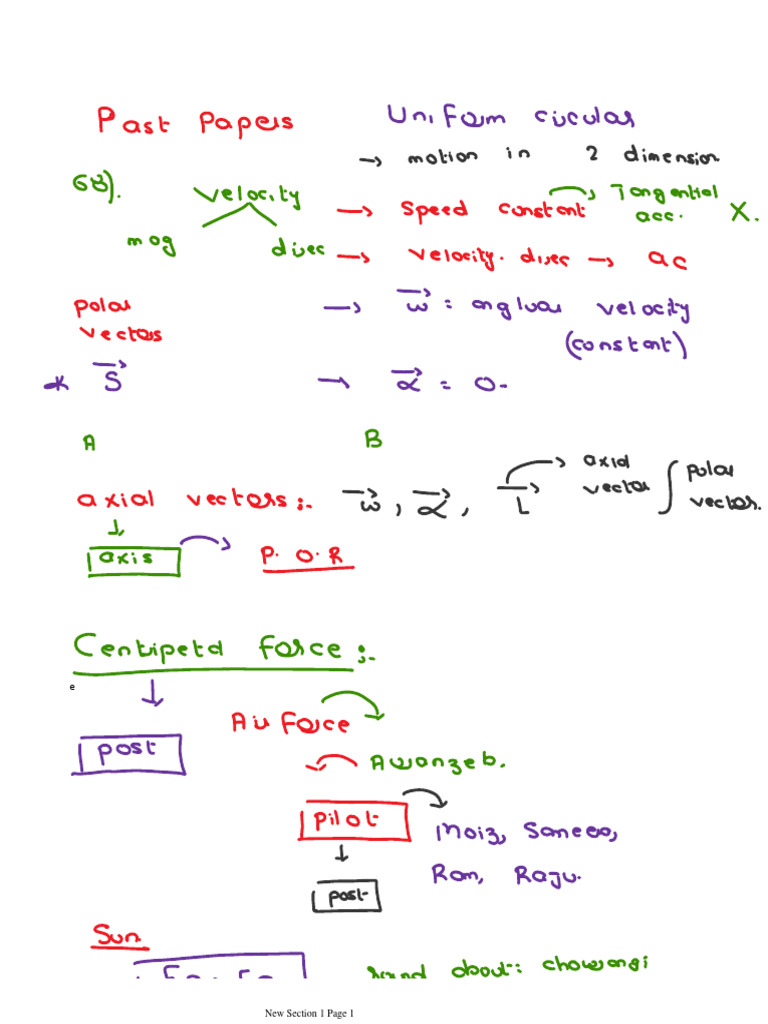 Past Papers
Uniform circular
→ motion in 2 dimension
68).
Velocity
mag
direc
→ Speed constant → Tangential acc. X.
→ Velocity. direc → ac
polar
vectors
→ ω = angluar velocity
(constant)
* S
→ α = 0.
A
B
axial vectors:-
ω, α, L → axial vector
polar vector.
axis
P.O.R
Centripetal force:-
e
post
Air force
Awranzeb.
pilot
Moiz,
Ram, Raju.
post
Sun
Fc = FG
Round about: chowrangi
New Section 1 Page 1